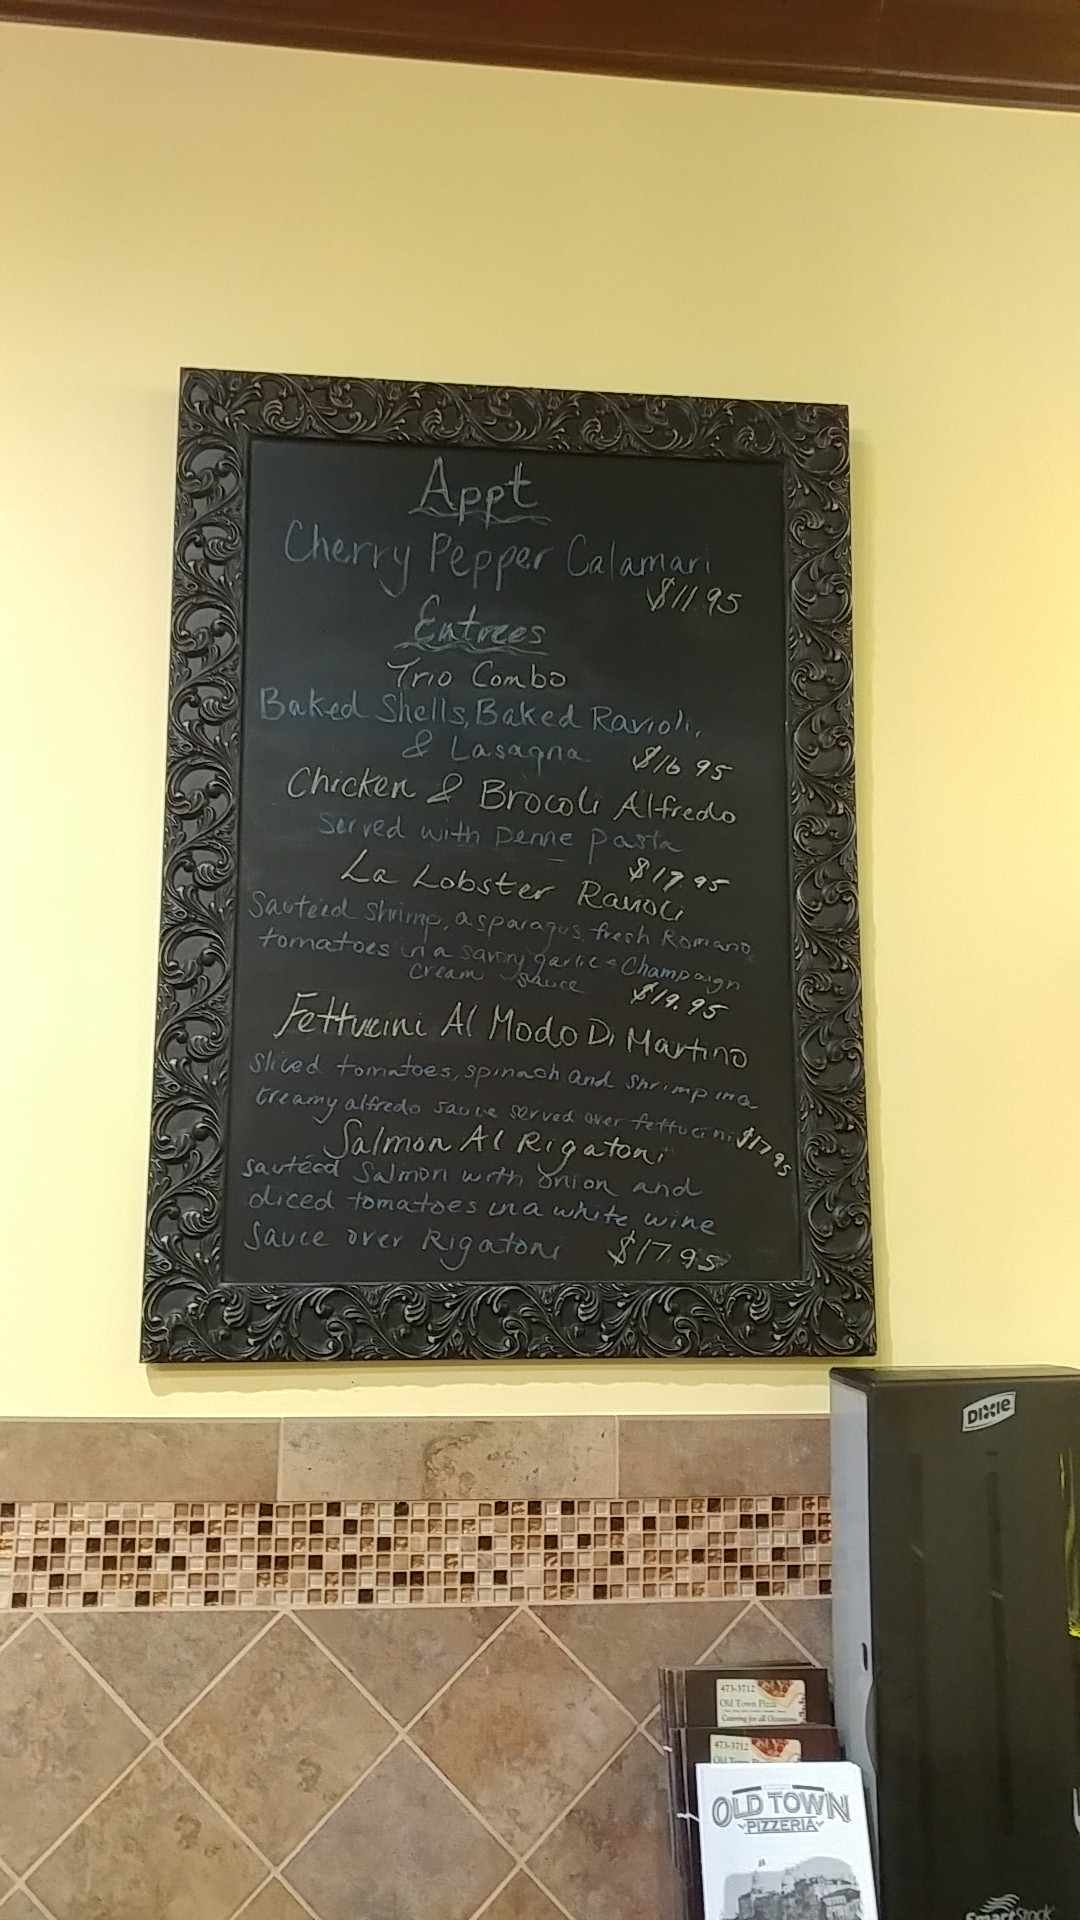 Appt
Cherry Pepper Calamari
$11.95
Entrees
Trio Combo
Baked Shells, Baked Ravioli,
& Lasagna $16.95
Chicken & Brocoli Alfredo
Served with penne pasta
$17.95
La Lobster Ravioli
Sauteéd shrimp, asparagus, fresh Romano
tomatoes in a savory garlic + Champaign
cream sauce $19.95
Fettucini Al Modo Di Martino
sliced tomatoes, spinach and shrimp in a
creamy alfredo sauce served over fettucini $17.95
Salmon Al Rigatoni
sautéed Salmon with onion and
diced tomatoes in a white wine
Sauce over Rigatoni $17.95
DIXIE
473-3712
Old Town Pizza
Catering for all Occasions
473-3712
Old Town
OLD TOWN
PIZZERIA
SmartStock